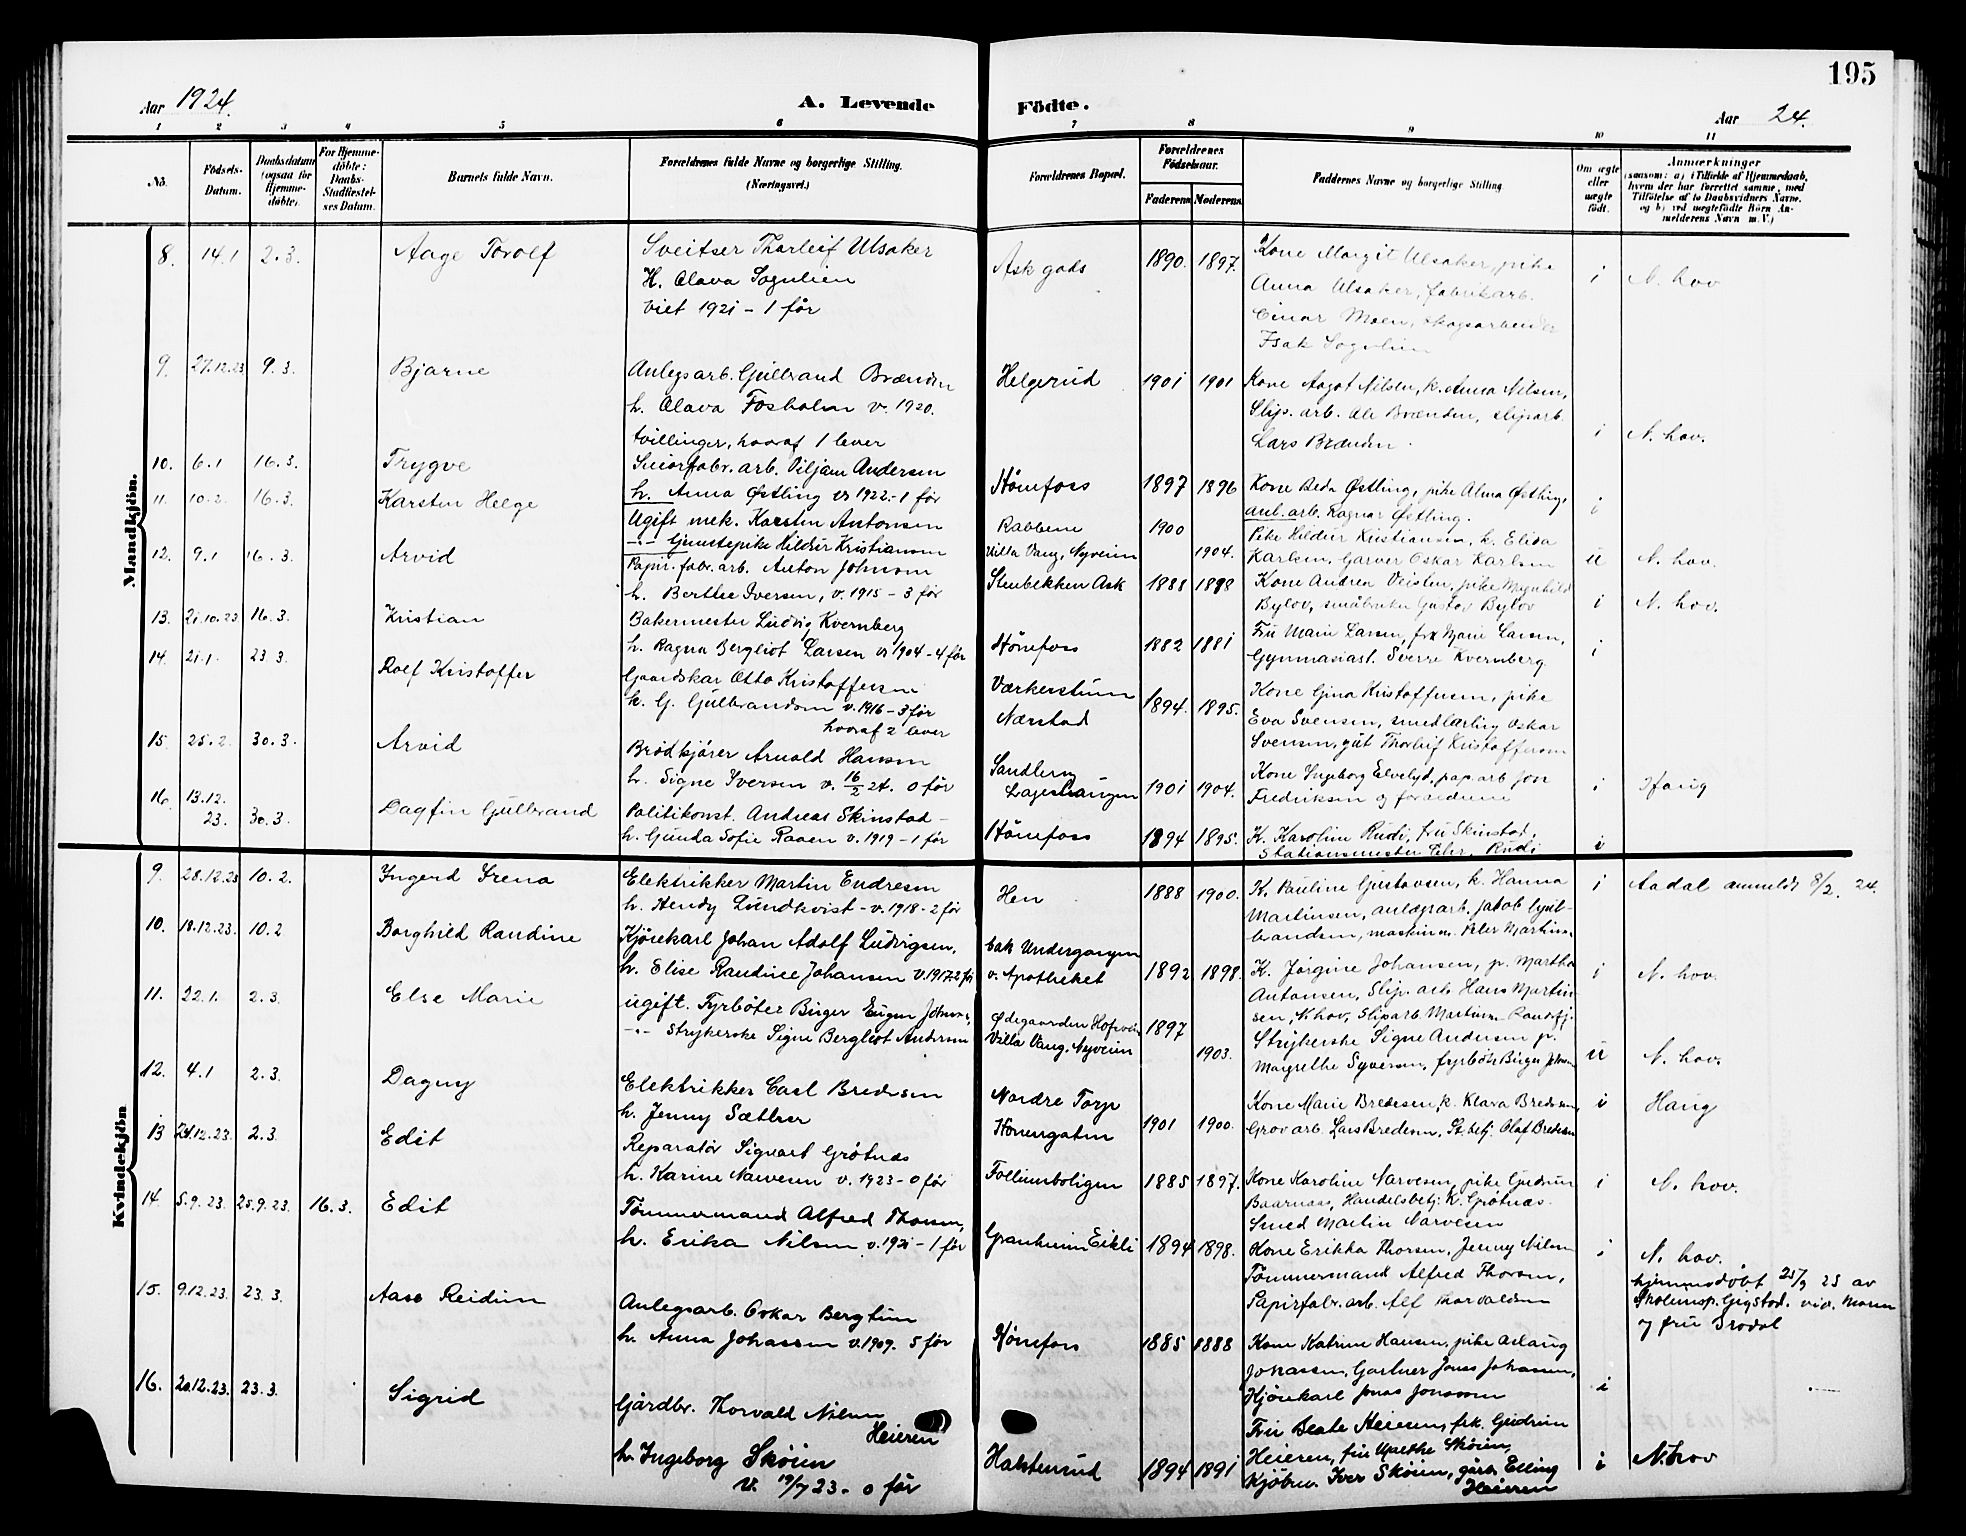 195
Aar 1924.
A. Levende Födte.
Aar 24.
1 2 3 4 5 6 7 8 9 10 11
No.
Födsels-Datum.
Daabsdatum (ogsaa for Hjemme-døbte).
For Hjemme-döbte: Daabs-Stadfæstel-ses Datum.
Barnets fulde Navn.
Forældrenes fulde Navne og borgerlige Stilling. (Næringsvei.)
Forældrenes Bopæl.
Forældrenes Födselsaar.
Faderens Moderens
Faddernes Navne og borgerlige Stilling
Om ægte eller uægte født.
Anmærkninger
(saasom: a) i Tilfælde af Hjemmedaab,
hvem der har forrettet samme, med
Tilföielse af to Daabsvidners Navne,
og b) ved uægtefödte Börn An-
melderens Navn m.V.)
Mandkjön.
8. 14.1 2.3. Aage Torolf
Sveitser Thorleif Ulsaker
H. Olava Sognlien
viet 1921 - 1 før
Ask gods 1890. 1897.
Kone Margit Ulsaker, pike
Anna Ulsaker, fabrikarb.
Einar Moen, skogsarbeider
Isak Sognlien
i N. hov
9. 27.12.23 9.3. Bjarne
Anlegsarb. Gulbrand Brænden
h. Olava Fosholm v. 1920.
tvillinger, hvoraf 1 lever
Helgerud 1901 1901
Kone Aagot Nilsen, k. Anna Nilsen,
Slip. arb. Ole Brænden, sliparb.
Lars Brænden.
i N. hov.
10. 6.1 16.3. Trygve
Snørfabr. arb. Viljam Andersen
h. Anna Østling v. 1922 - 1 før
Hönefoss 1897 1896
Kone Beda Østling, pike Alma Østling,
anl. arb. Ragnar Østling.
i
11. 10.2. 16.3. Karsten Helge
Ugift mek. Karsten Antonsen
-"- tjenestepike Hildur Kristiansen
Rabbene 1900
Villa Vang, Nyveien 1904.
Pike Hildur Kristiansen, k. Elida
Karlsen, Garver Oskar Karlsen
u N. hov.
12. 9.1 16.3. Arvid
Papir. fabr. arb. Anton Johnsen
h. Berthe Iversen, v. 1915 - 3 før
Stenbekken Ask 1888 1898
Kone Andrea Veisten, pike Magnhild
Bylov, småbruker Gustav Bylov
i N. hov.
13. 21.10.23 16.3. Kristian
Bakermester Ludvig Kvernberg
h. Ragna Bergliot Larsen v. 1904 - 4 før
Hönefoss 1882 1881
Fru Marie Larsen, frk Marie Larsen,
Gymnasiast. Sverre Kvernberg
i
14. 21.1. 23.3. Rolf Kristoffer
Gaardskar Otto Kristoffersen
h. G. Gulbrandsen v. 1916 - 3 før
hvoraf 2 lever
Værkerstuen
Nærstad
1894. 1895.
Kone Gina Kristoffersen, pike
Eva Svensen, smedlærling Oskar
Svensen, gut Thorleif Kristoffersen
15. 25.2. 30.3. Arvid
Brödkjører Arnold Hansen
h. Signe Iversen v. 16/2 24. 0 før
1901 1904.
Kone Ingeborg Elvelyd, pap. arb Jon
Fredriksen og forældrene
i Haug
16. 13.12. 23. 30.3. Dagfin Gulbrand
Politikonst. Andreas Skinstad -
h. Gunda Sofie Raaen v. 1919 - 1 før
Hönefoss 1894 1895.
K. Karoline Rudi, fru Skinstad,
Stationsmester Peter Rudi
i
Kvindekjön
9. 28.12.23 10.2. Ingerd Irena
Elektrikker Martin Endresen
h. Hendy Lundkvist - v. 1918 - 2 før
Hen 1888 1900.
K. Pauline Gustavsen, k. Hanna
Martinsen, anlægsarb. Jakob Gul-
brandsen, maskinm. Peter Martinsen
i Aadal anmeldt 8/2. 24.
10. 18.12.23. 10.2 Borghild Randine
Kjörekarl Johan Adolf Ludvigsen,
h. Elise Randine Johansen v. 1917 2 før
bak Undergangen
v. Apotheket
1892 1898.
K. Jørgine Johansen, p. Martha
Antonsen, Slip. arb Hans Martin-
sen, N hov, Sliparb Martinsen Randsfj.
i N. hov.
11. 22.1. 2.3. Else Marie
ugift. Fyrböter Birger Eugen Johnsen,
-"- Strykerske Signe Bergliot Andersen
Ødegaarden Hofsveien 1897
Villa Vang, Nyveien 1903.
Strykerske Signe Andersen p.
Margrethe Syversen, fyrböter Birger Johnsen
u N. hov.
12. 4.1 2.3. Dagny
Elektrikker Carl Bredesen
h. Jenny Sæther
Nordre Torp
Hönengaten
1901 1900.
Kone Marie Bredesen, k. Klara Bredesen,
Grovarb. Lars Bredesen, St. betj. Olaf Bredesen
i Haug
13 21.12.23. 2.3. Edit
Reparatör Sigvart Grötnæs
h. Karine Narvesen v. 1923 - 0 før
Follumboligen 1885 1897.
Kone Karoline Narvesen, pike Gudrun
Baarnaas, Handelsbetj. K. Grötnæs.
Smed Martin Narvesen
i N. hov.
14. 5.9.23. 25.9.23. 16.3. Edit
Tømmermand Alfred Thorsen,
h. Erika Nilsen v. 1921 - 1 før
Granheim Eikli 1894 1898.
Kone Erikka Thorsen, Jenny Nilsen
Tømmermand Alfred Thorsen,
Papirfabr. arb. Alf Thorvaldsen
i N. hov.
hjemmedöbt 25/9 23 av
Skoleinsp. Gigstad. vid. Moren
og fru Brodal
15. 9.12.23. 23.3. Aase Reidun
Anlegsarb. Oskar Bergtun
h. Anna Johansen v. 1909. 5 før
Hönefoss 1885 1888
Kone Katrine Hansen, pike Aslaug
Jonassen, Gartner Jonas Johansen,
Kjörekarl Jonas Jonassen
i
16. 20.12.23. 23.3. Sigrid
Gårdbr. Thorvald Nilsen
Heieren
h. Ingeborg Skøien
v. 19/7 23 - 0 før
Halstenrud 1894 1891
Fru Beate Heieren, frk. Gudrun
Heieren, fru Marthe Skøien,
Kjöbm. Iver Skøien, gårb. Elling
Heieren
i N. hov